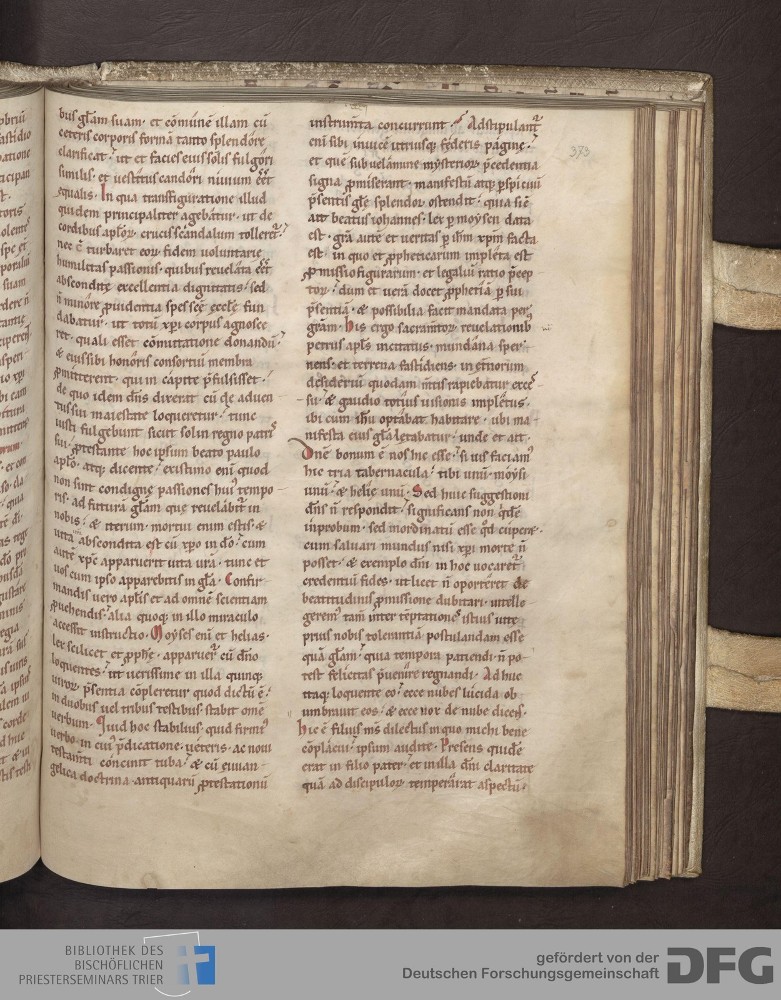 bus gl̄am suam · et cōmunē illam cū
ceteris corporis formā tanto splendore
clarificat · ut et facies eius solis fulgori
similis · et vestitus candori niuium eēt
equalis · In qua transfiguratione illud
quidem principaliter agebatur · ut de
cordibus aplōr crucis scandalum tolleret᷑ ·
nec ē turbaret eor fidem voluntarie
humilitas passionis · quibus reuelata eēt
abscondite excellentia dignitatis · sed
n̄ minore ꝓuidentia spes sc̄e ęccl̄ę fun
dabatur · ut totū xpi corpus agnosce
ret · quali esset cōmutatione donandū ·
& eius sibi honoris consortiū membra
ꝓmitterent · qui in capite p̄fulsisset ·
de quo idem dn̄s dixerat cū de aduen
tus sui maiestate loqueretur · tunc
iusti fulgebunt sicut sol in regno patris
sui · ꝓtestante hoc ipsum beato paulo
aplō · atq; dicente · existimo eni quod
non sunt condignę passiones hui᷒ tempo
ris · ad futurā gl̄am quę reuelabit᷑ in
nobis · & iterum · mortui enim estis · &
uita abscondita est cū xp̄o in dō · cum
autē xpc apparuerit uita ura · tunc et
vos cum ipso apparebitis in gl̄a · Confir
mandis vero aplis et ad omnē scientiam
ꝓuehendis · alia quoq; in illo miraculo
accessit instructio · Moyses eni et helias ·
lex scilicet et ꝓphę · apparuer̄ cū dn̄o
loquentes · ut verissime in illa quinq;
uiror p̄sentia cōpleretur quod dictū ē ·
in duobus uel tribus testibus · stabit omē
verbum · Quid hoc stabilius · quid firmi᷒
verbo · in cui᷒ p̄dicatione · ueteris · ac noui
testamti concinit tuba · & cū euuan ·
gelica doctrina · antiquarū ꝓtestationū
373
instrumta concurrunt · Adstipulant᷑
eni sibi inuicē utriusq; federis paginę ·
et quē sub velamine mysterior p̄cedentia
signa ꝓmiserant · manifestū atq; ꝑspicuū
p̄sentis gl̄ę splendor ostendit · quia sic̄
ait beatus iohannes · lex ꝑ moysen data
est · gr̄a autē et veritas ꝑ ihm xpm facta
est · in quo et ꝓpheticarum impleta est
ꝓmissio figurarum · et legaliū ratio p̄cep
tor · dum et verā docet ꝓphetiā ꝑ sui
p̄sentiā · & possibilia facit mandata per
gram · His ergo sacramtor reuelationib
petrus apls incitatus · mundana sper ·
nens · et terrena fastidiens · in et̄norum
desideriū quodam mtis rapiebatur exces
su · & gaudio totius visionis impletus ·
ibi cum ihu optabat habitare · ubi ma ·
nifesta eius gl̄a letabatur · unde et ait ·
Dn̄e bonum ē nos hic esse · si uis faciam᷒
hic tria tabernacula · tibi unū · moysi
unū · & helie unū · Sed huic suggestioni
dn̄s n̄ respondit · significans non q̄dē
inprobum · sed inordinatū esse qd̄ cuperet ·
cum saluari mundus nisi xpi morte n̄
posset · & exemplo dn̄i in hoc uocaret᷑
credentiū fides · ut licet n̄ oporteret de
beatitudinis ꝓmissione dubitari · intelle
gerem᷒ tam̄ inter tēptationes istius uitę
prius nobis tolerantiā postulandam esse
quā gl̄am · quia tempora patiendi n̄ po ·
test felicitas p̄uenire regnandi · Adhuc
itaq; loquente eo · ecce nubes lucida ob
umbrauit eos · & ecce vox de nube dicens ·
hic ē filius ms dilectus in quo michi bene
cōplacui · ipsum audite · Presens quidē
erat in filio pater · et in illa dn̄i claritate
quā ad discipulor temperarat aspectū ·
BIBLIOTHEK DES
BISCHÖFLICHEN
PRIESTERSEMINARS TRIER
gefördert von der
Deutschen Forschungsgemeinschaft
DFG